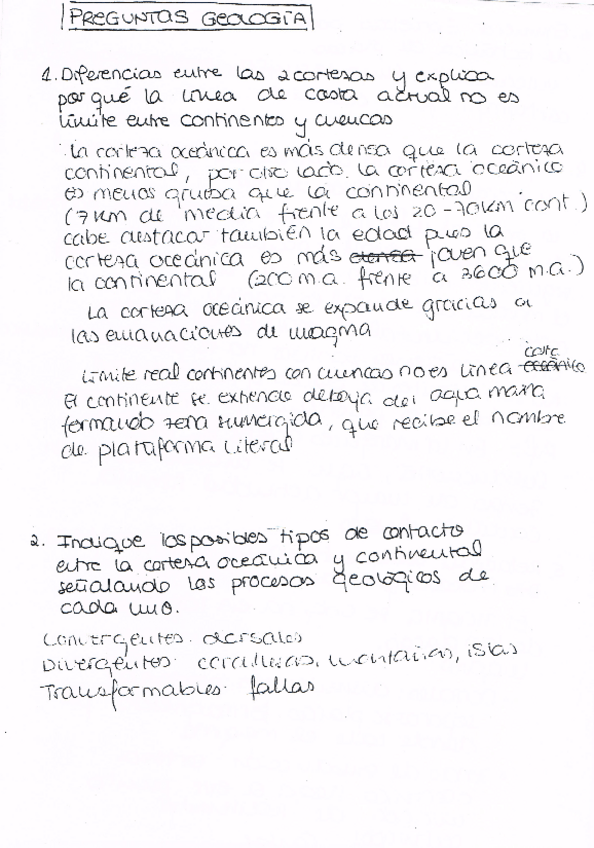 PREGUNTAS GEOLOGÍA
1. Diferencias entre las 2 cortezas y explica
por qué la línea de costa actual no es
límite entre continentes y cuencas
La corteza oceánica es más densa que la corteza
continental, por otro lado la corteza oceánico
es menos gruesa que la continental
(7 km de media frente a los 20-70 km cont.)
cabe destacar también la edad pues la
corteza oceánica es más joven que
la continental (200 m.a. frente a 3600 m.a.)
La corteza oceánica se expande gracias a
las emanaciones de magma
Límite real continentes con cuencas no es línea costa
El continente se extiende debajo del agua
formando zona sumergida, que recibe el nombre
de plataforma literal
2. Indique los posibles tipos de contacto
entre la corteza oceánica y continental
señalando los procesos geológicos de
cada uno.
Convergentes: dorsales
Divergentes: cordilleras, montañas, islas
Transformables: fallas